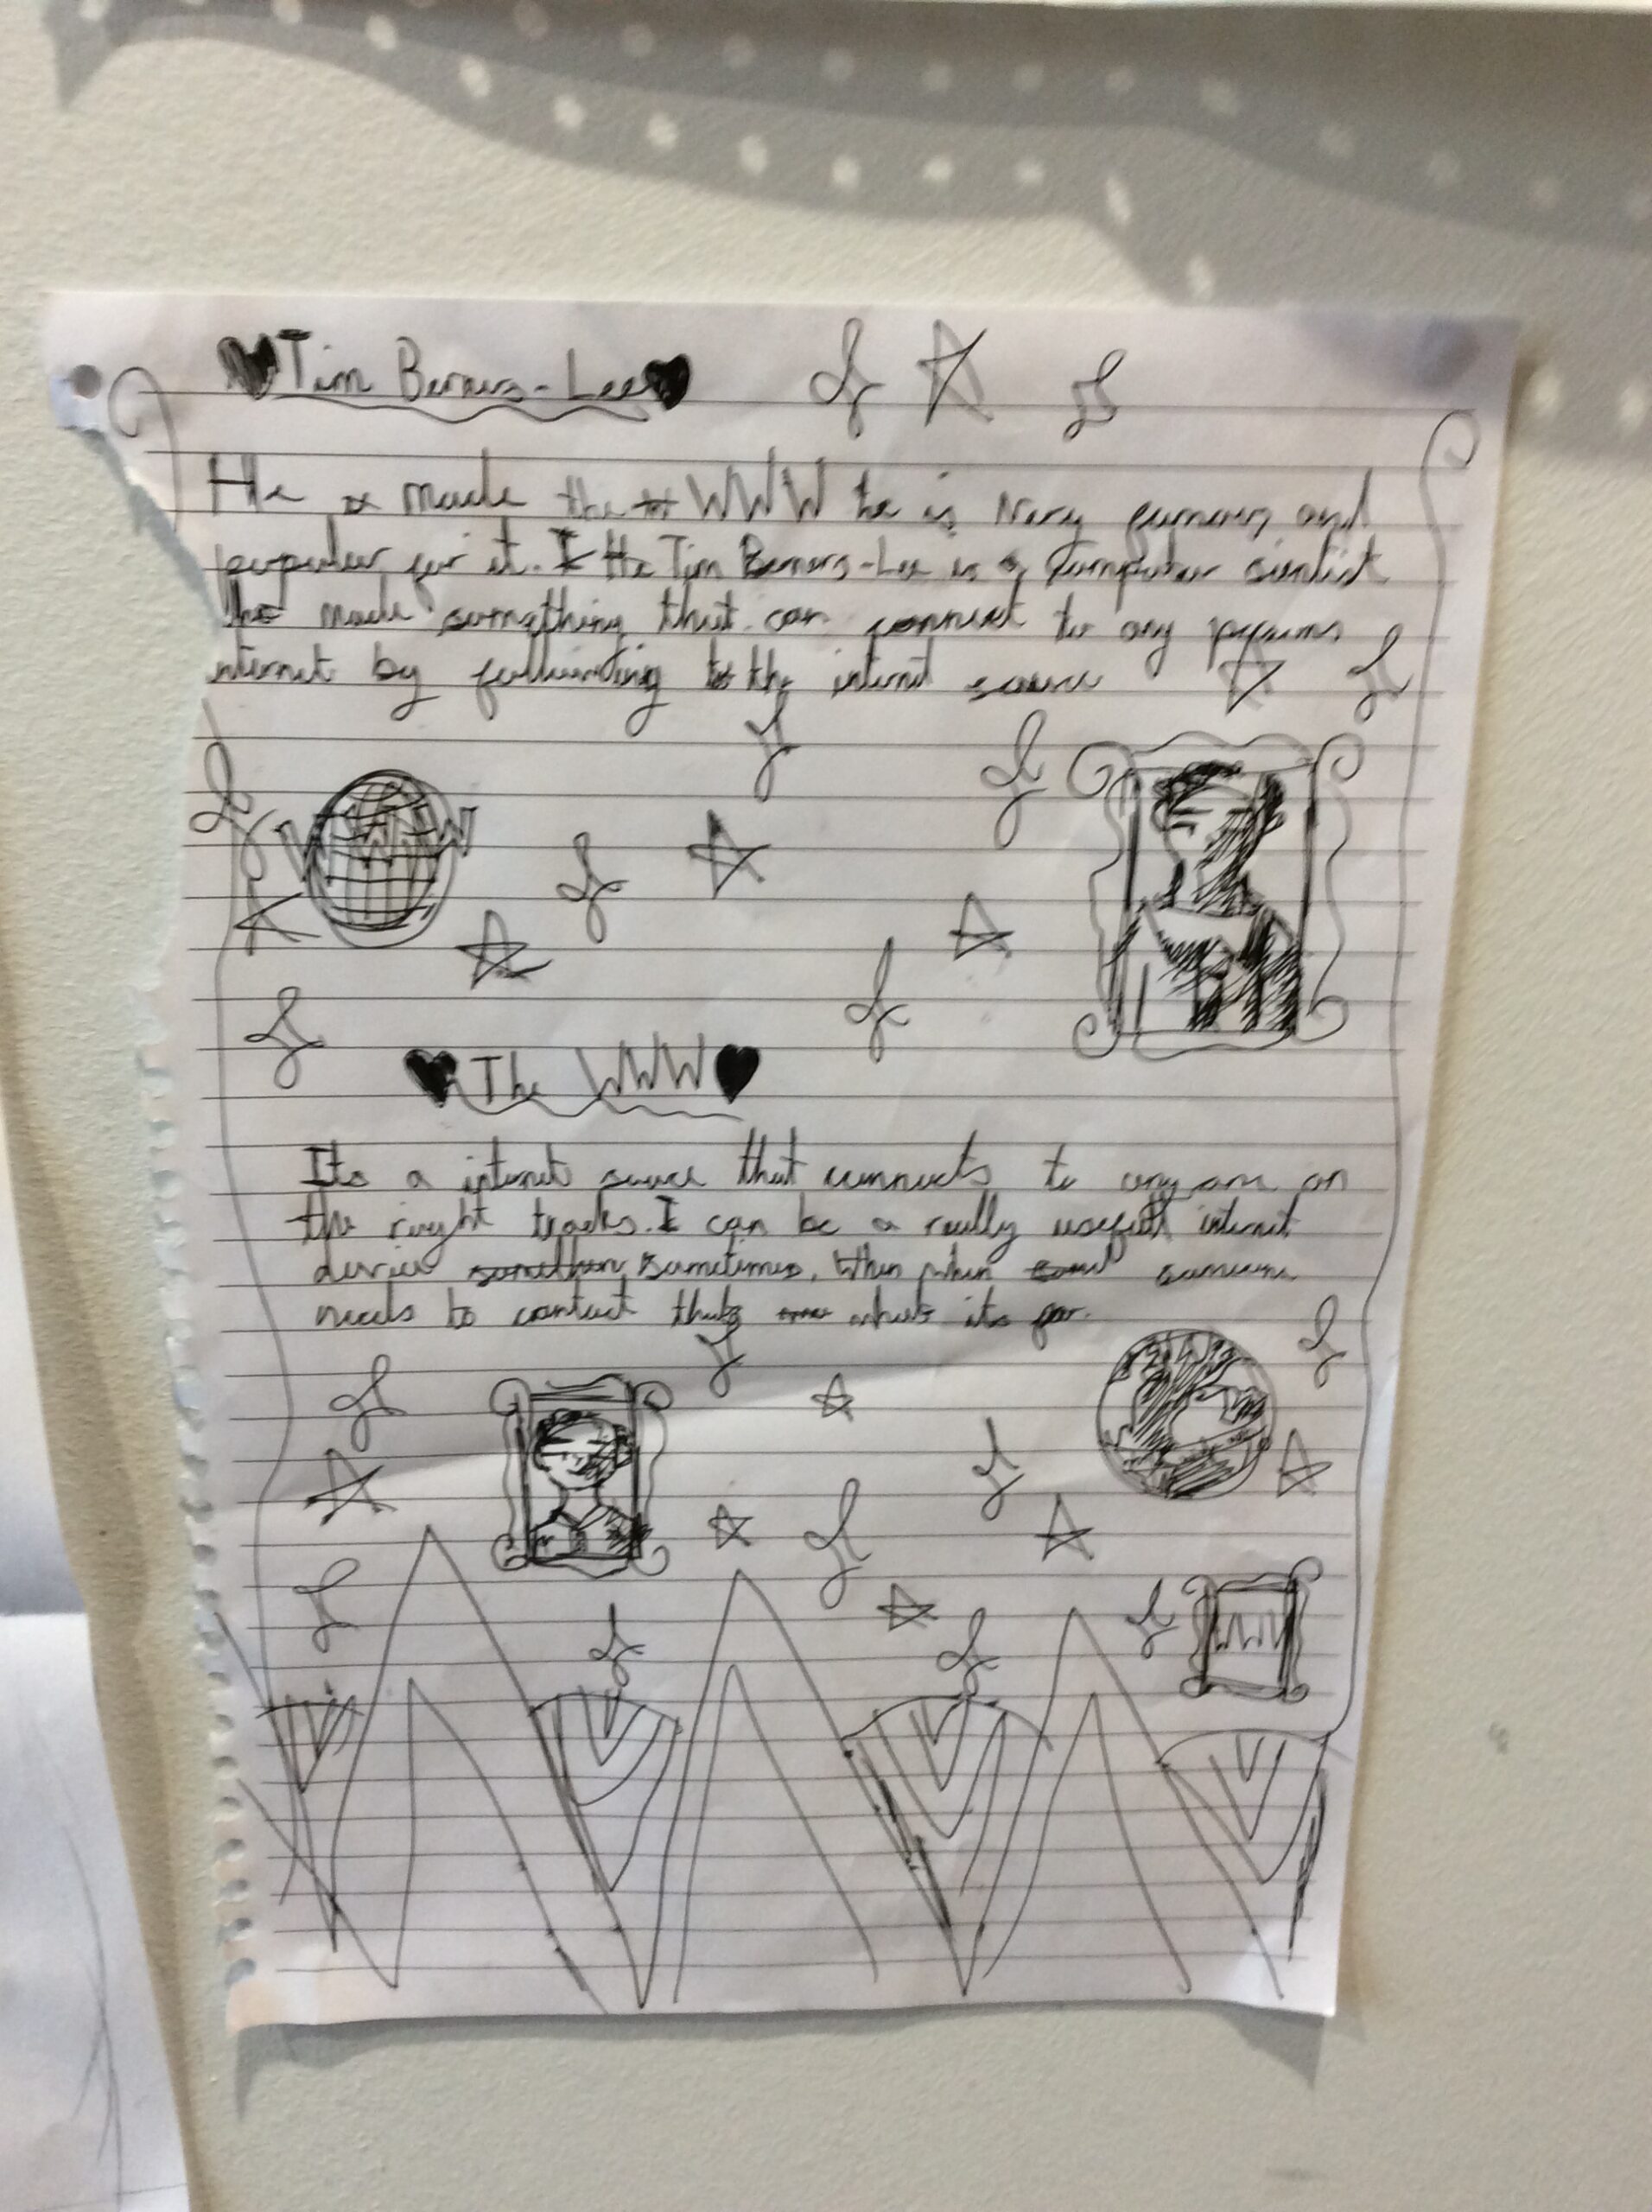 Tim Berners-Lee
He made the WWW he is very famous and
popular for it. He Tim Berners-Lee is a Computer sientist
he made something that can connect to any persons
internet by the internet source
WWW
The WWW
Its a internet source that connects to anyone on
the right tracks. I can be a really usefull internet
device sometimes. When when someone
needs to contact thats what its for.
WWW